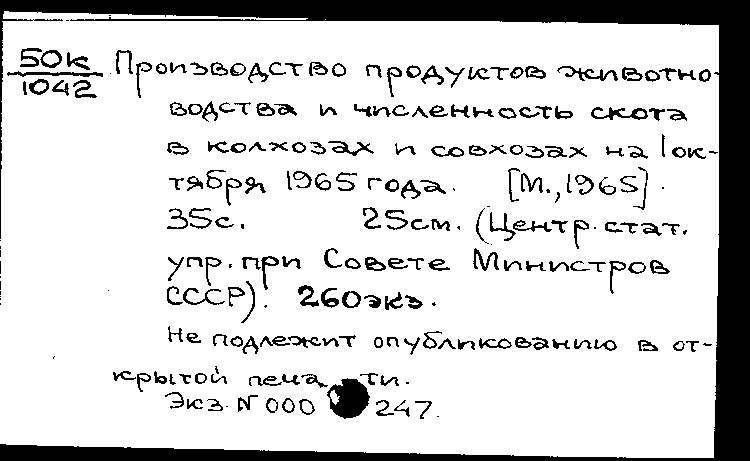 50к Производство продуктов животно-
1042
водства и численность скота
в колхозах и совхозах на 1 ок-
тября 1965 года. [М., 1965].
35с. 25см. (Центр. стат.
упр. при Совете Министров
СССР). 260экз.
Не подлежит опубликованию в от-
крытой печати.
Экз. N 000 247.